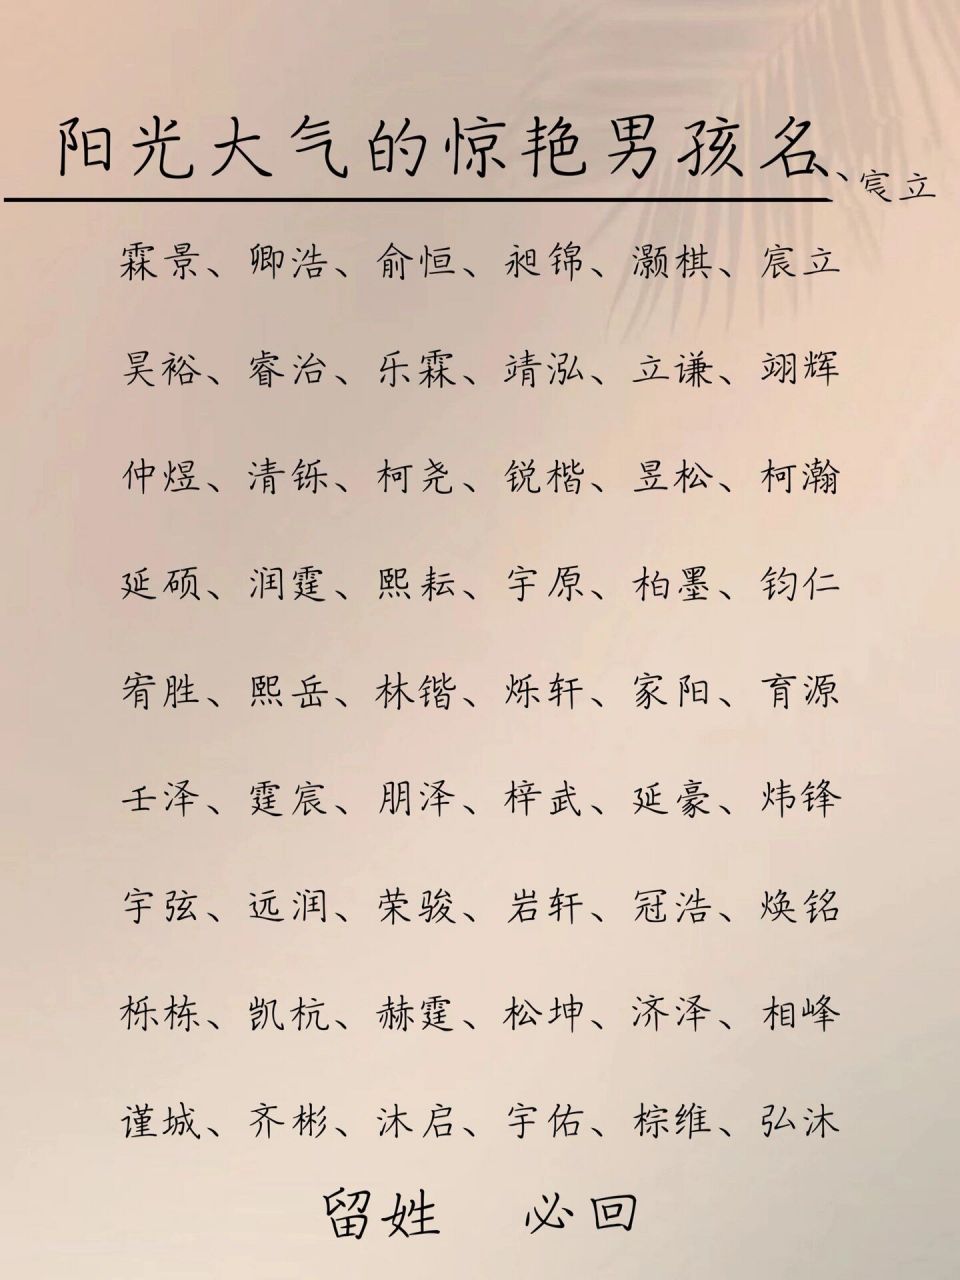 阳光大气的惊艳男孩名
、宸立
霖景、卿浩、俞恒、昶锦、灏棋、宸立
昊裕、睿治、乐霖、靖泓、立谦、翊辉
仲煜、清铄、柯尧、锐楷、昱松、柯瀚
延硕、润霆、熙耘、宇原、柏墨、钧仁
宥胜、熙岳、林锴、烁轩、家阳、育源
壬泽、霆宸、朋泽、梓武、延豪、炜锋
宇弦、远润、荣骏、岩轩、冠浩、焕铭
栎栋、凯杭、赫霆、松坤、济泽、相峰
谨城、齐彬、沐启、宇佑、棕维、弘沐
留姓 必回